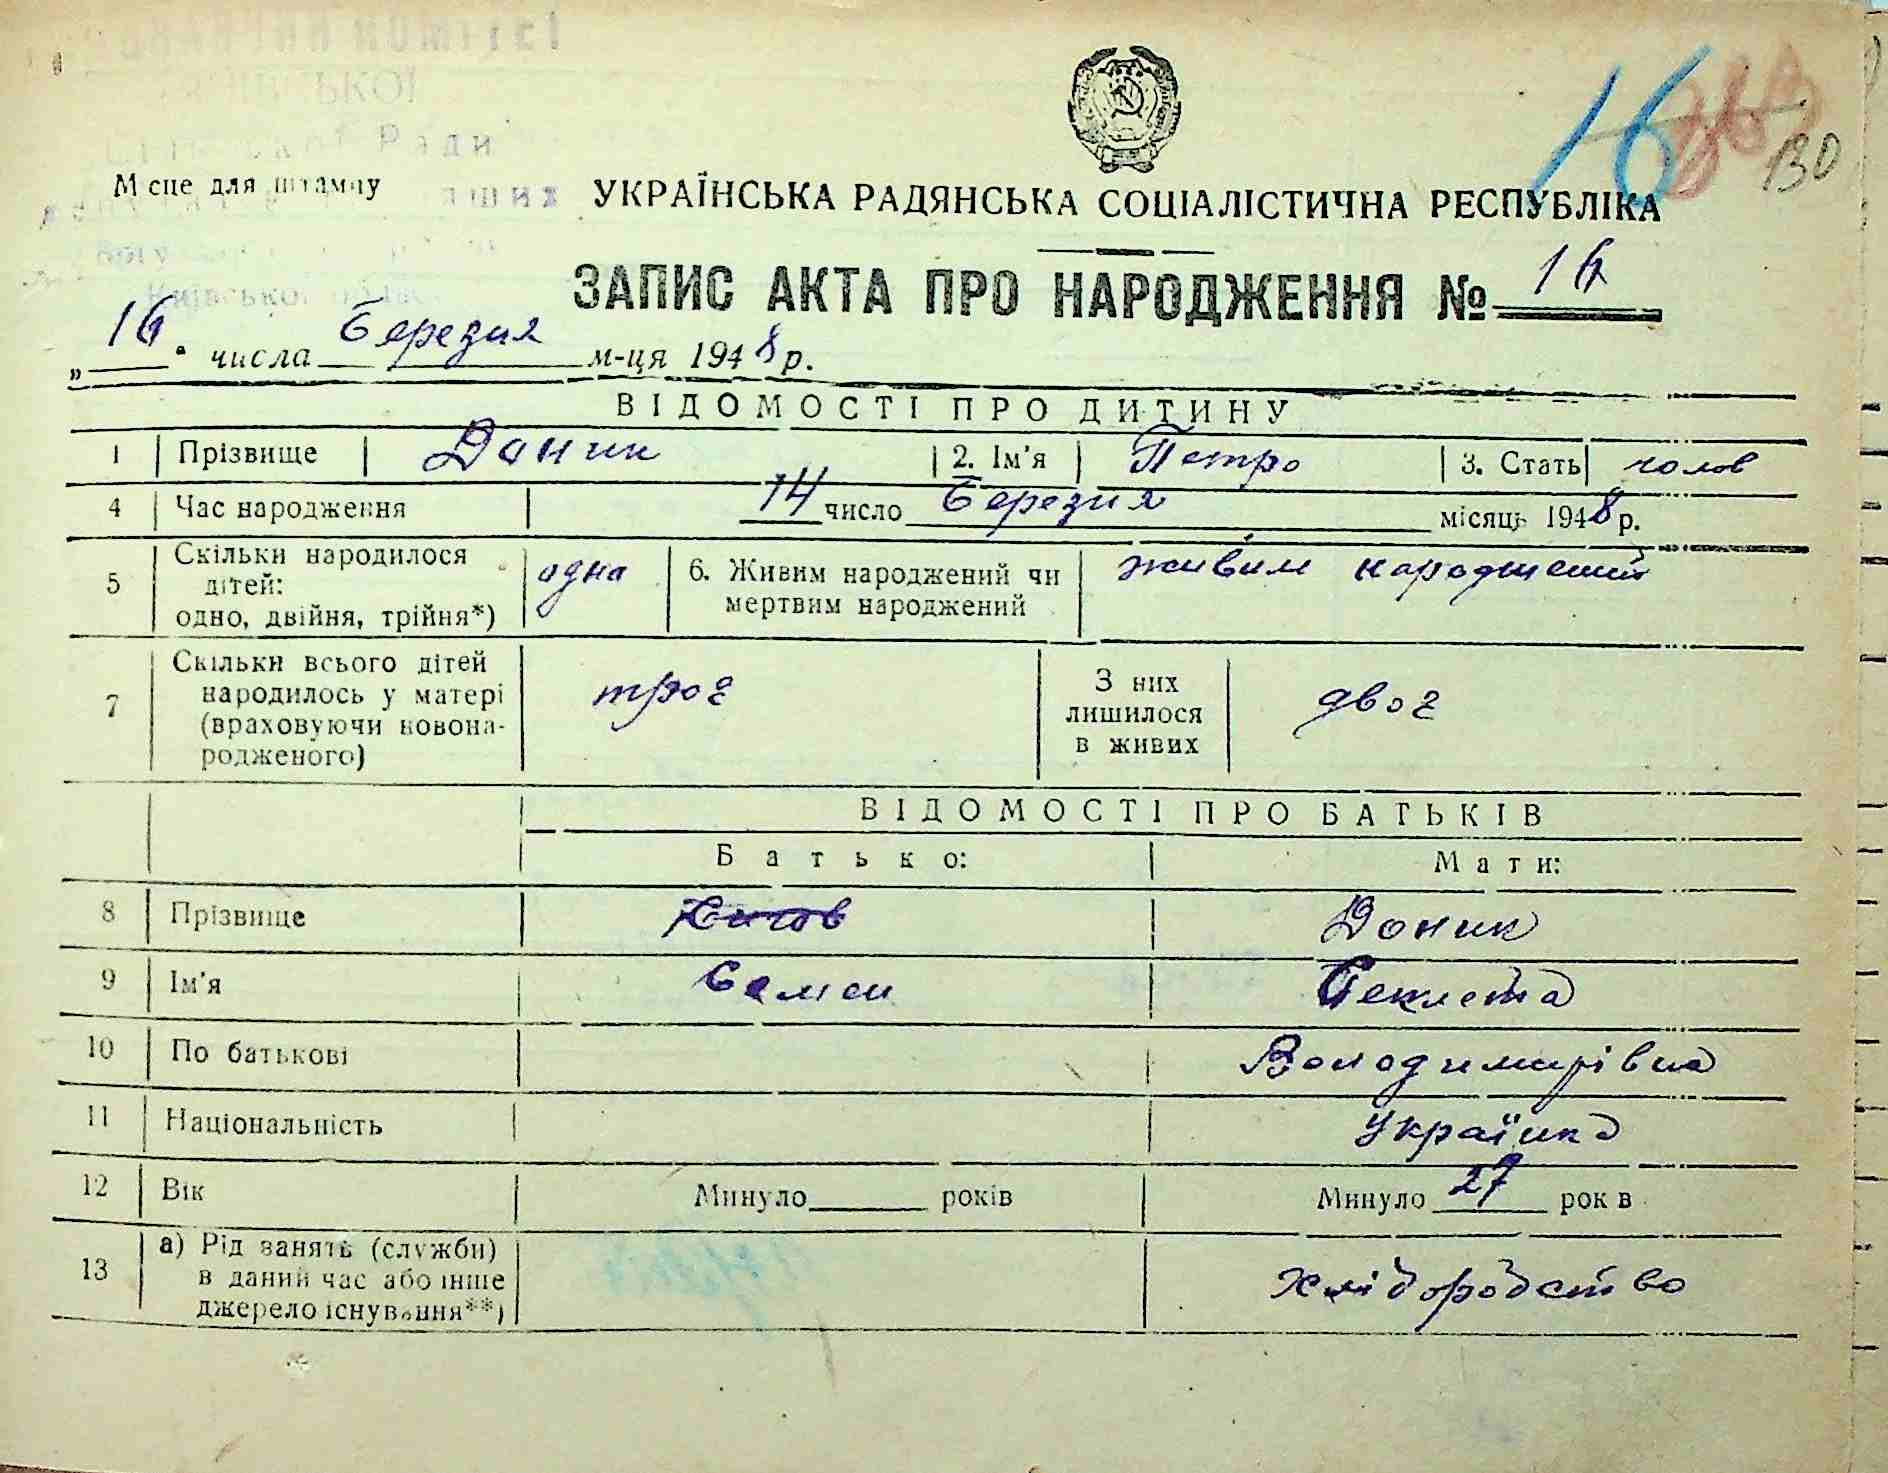 Ради
Київської
Місце для штампу
16 130
УКРАЇНСЬКА РАДЯНСЬКА СОЦІАЛІСТИЧНА РЕСПУБЛІКА
ЗАПИС АКТА ПРО НАРОДЖЕННЯ № 16
„16“ числа Березня м-ця 1948 р.
ВІДОМОСТІ ПРО ДИТИНУ
1 Прізвище Доник 2. Ім'я Петро 3. Стать чолов
4 Час народження 14 число Березня місяць 1948 р.
5 Скільки народилося дітей: одно, двійня, трійня*) одна 6. Живим народжений чи мертвим народжений живим народжений
7 Скільки всього дітей народилось у матері (враховуючи новонародженого) троє З них лишилося в живих двоє
ВІДОМОСТІ ПРО БАТЬКІВ
Батько: Мати:
8 Прізвище Доник
9 Ім'я Теклета
10 По батькові Володимирівна
11 Національність Українка
12 Вік Минуло років Минуло 27 років
13 а) Рід занять (служби) в даний час або інше джерело існування**) хліборобство